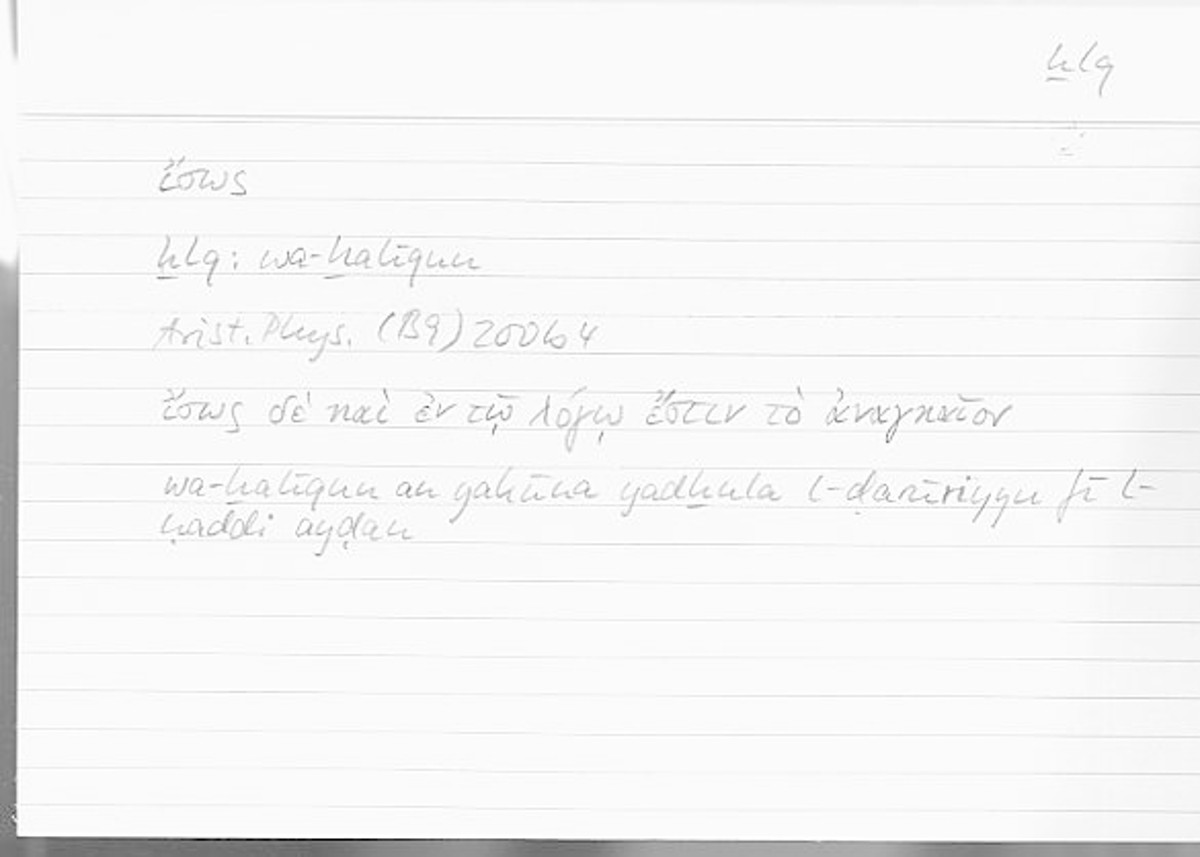 ḫlq
ἴσως
ḫlq: wa-ḫalīqun
Arist. Phys. (B9) 200b4
ἴσως δὲ καὶ ἐν τῷ λόγῳ ἔστιν τὸ ἀναγκαῖον
wa-ḫalīqun an yakūna yadḫula l-ḍarūriyyu fī l-
ḥaddi ayḍan